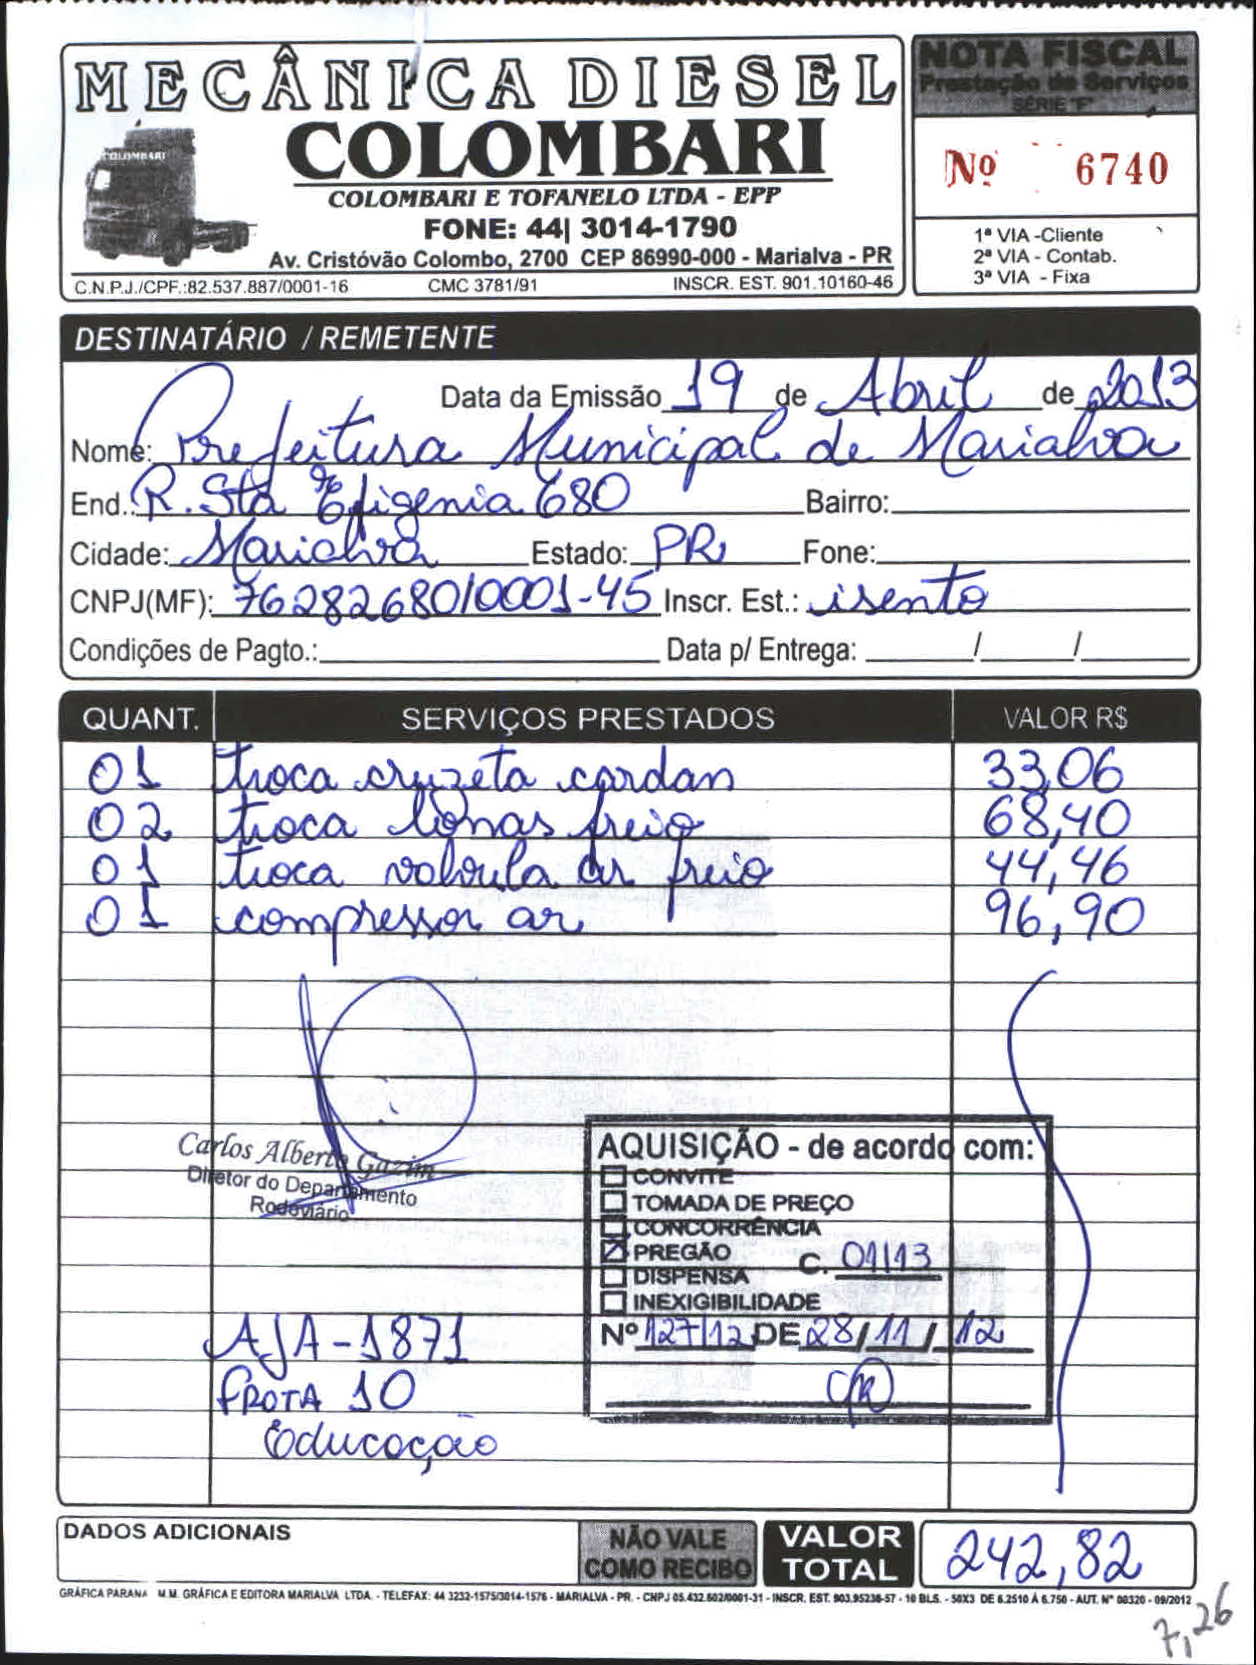 MECÂNICA DIESEL
COLOMBARI
COLOMBARI
COLOMBARI E TOFANELO LTDA - EPP
FONE: 44| 3014-1790
Av. Cristóvão Colombo, 2700 CEP 86990-000 - Marialva - PR
C.N.P.J./CPF.:82.537.887/0001-16 CMC 3781/91 INSCR. EST. 901.10160-46
NOTA FISCAL
Prestação de Serviços
SÉRIE "F"
Nº 6740
1ª VIA -Cliente
2ª VIA - Contab.
3ª VIA - Fixa
DESTINATÁRIO / REMETENTE
Data da Emissão 19 de Abril de 2013
Nome: Prefeitura Municipal de Marialva
End.: R. Sta Efigenia 680 Bairro:
Cidade: Marialva Estado: PR Fone:
CNPJ(MF): 76282680/0001-45 Inscr. Est.: isento
Condições de Pagto.: Data p/ Entrega: / /
QUANT. SERVIÇOS PRESTADOS VALOR R$
01 troca cruzeta cardan 33,06
02 troca lonas freio 68,40
01 troca valvula ar freio 44,46
01 compressor ar 96,90
Carlos Alberto Gazim
Diretor do Departamento
Rodoviário
AQUISIÇÃO - de acordo com:
CONVITE
TOMADA DE PREÇO
CONCORRÊNCIA
PREGÃO C. 01/13
DISPENSA
INEXIGIBILIDADE
Nº 127/12 DE 28/11/12
AJA-1871
FROTA 10
Educação
DADOS ADICIONAIS
NÃO VALE
COMO RECIBO
VALOR
TOTAL
242,82
GRÁFICA PARANA M.M. GRÁFICA E EDITORA MARIALVA LTDA. - TELEFAX: 44 3232-1575/3014-1576 - MARIALVA - PR. - CNPJ 05.432.602/0001-31 - INSCR. EST. 903.95236-57 - 10 BLS. - 50X3 DE 6.2510 Á 6.750 - AUT. Nº 00320 - 09/2012
7,26